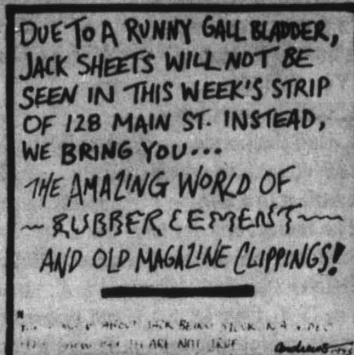 DUE TO A RUNNY GALL BLADDER,
JACK SHEETS WILL NOT BE
SEEN IN THIS WEEK'S STRIP
OF 128 MAIN ST. INSTEAD,
WE BRING YOU...
THE AMAZING WORLD OF
~RUBBER CEMENT~
AND OLD MAGAZINE CLIPPINGS!
ABOUT JACK BEING STUCK IN A
ARE NOT TRUE